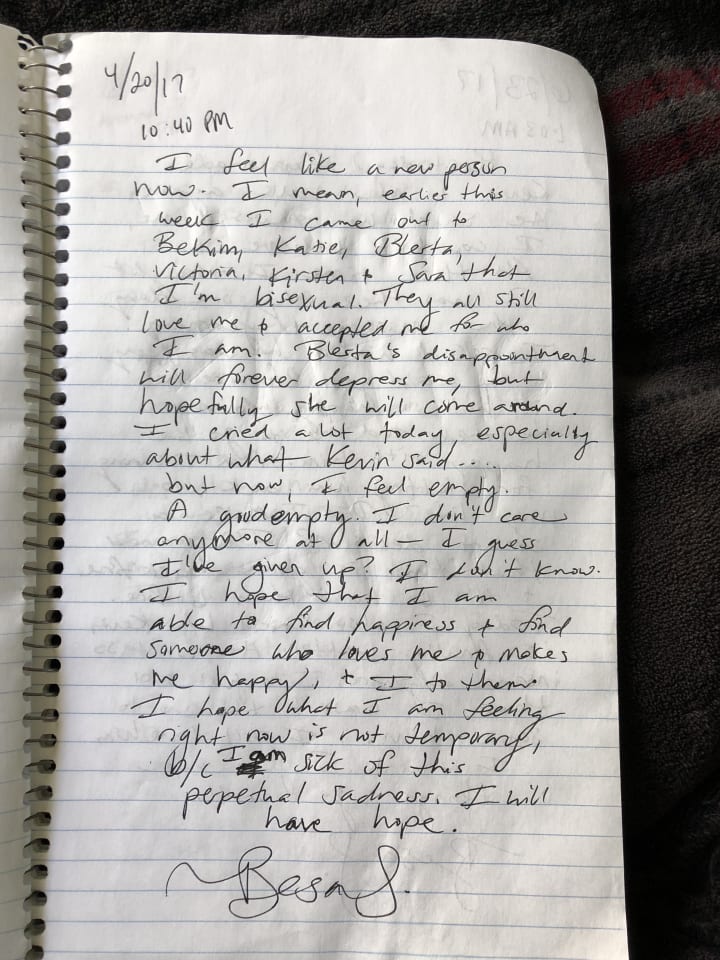 4/20/17
10:40 PM
I feel like a new person
now. I mean, earlier this
week I came out to
Bekim, Katie, Blerta,
Victoria, Kirsten & Sara that
I'm bisexual. They all still
love me & accepted me for who
I am. Blerta's disappointment
will forever depress me, but
hopefully she will come around.
I cried a lot today, especially
about what Kevin said....
but now, I feel empty.
A good empty. I don't care
anymore at all — I guess
I've given up? I don't know.
I hope that I am
able to find happiness & find
someone who loves me & makes
me happy, & I to them.
I hope what I am feeling
right now is not temporary,
b/c I am sick of this
perpetual sadness. I will
have hope.
~Besa S.